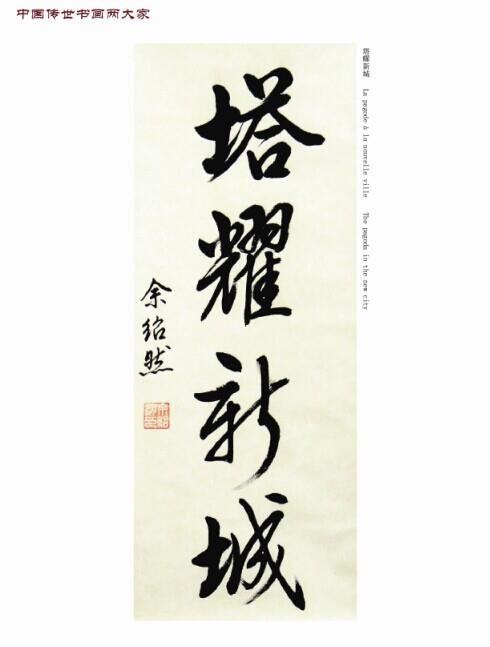 中国传世书画两大家
塔耀新城
余绍然
塔耀新城 La pagode à la nouvelle ville The pagoda in the new city